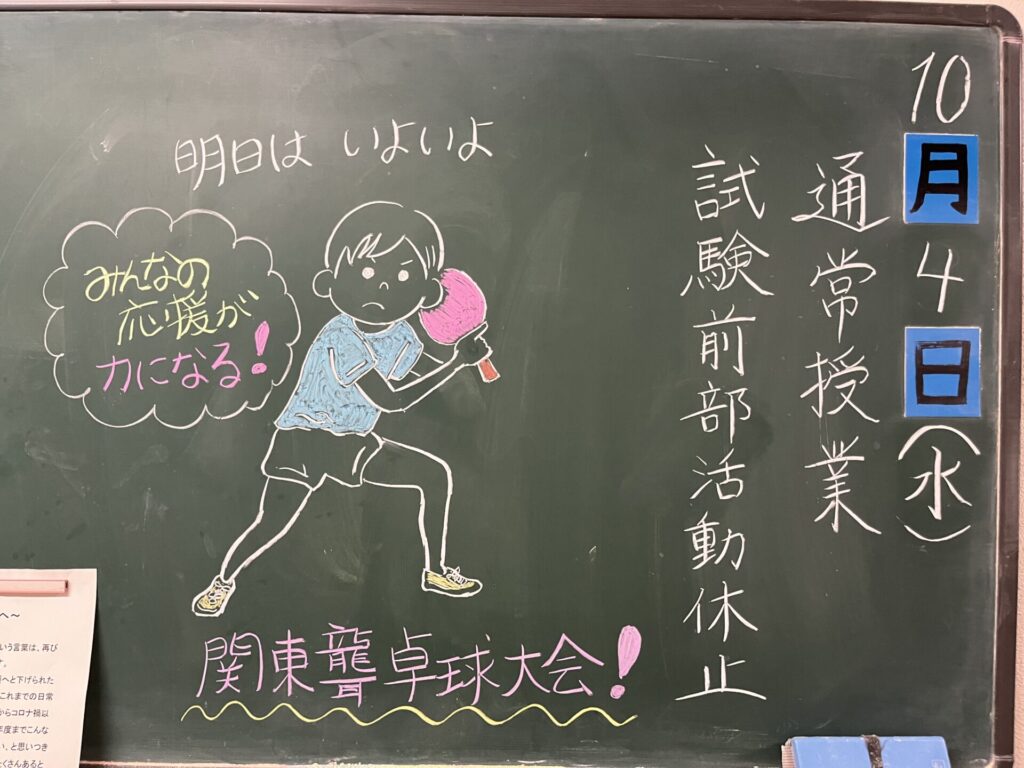 10月4日(水)
通常授業
試験前部活動休止
明日は いよいよ
みんなの
応援が
力になる!
関東聾卓球大会!
へ~
いう言葉は、再び
へと下げられた
これまでの日常
からコロナ禍以
年度までこんな
い、と思いつき
くさんあると